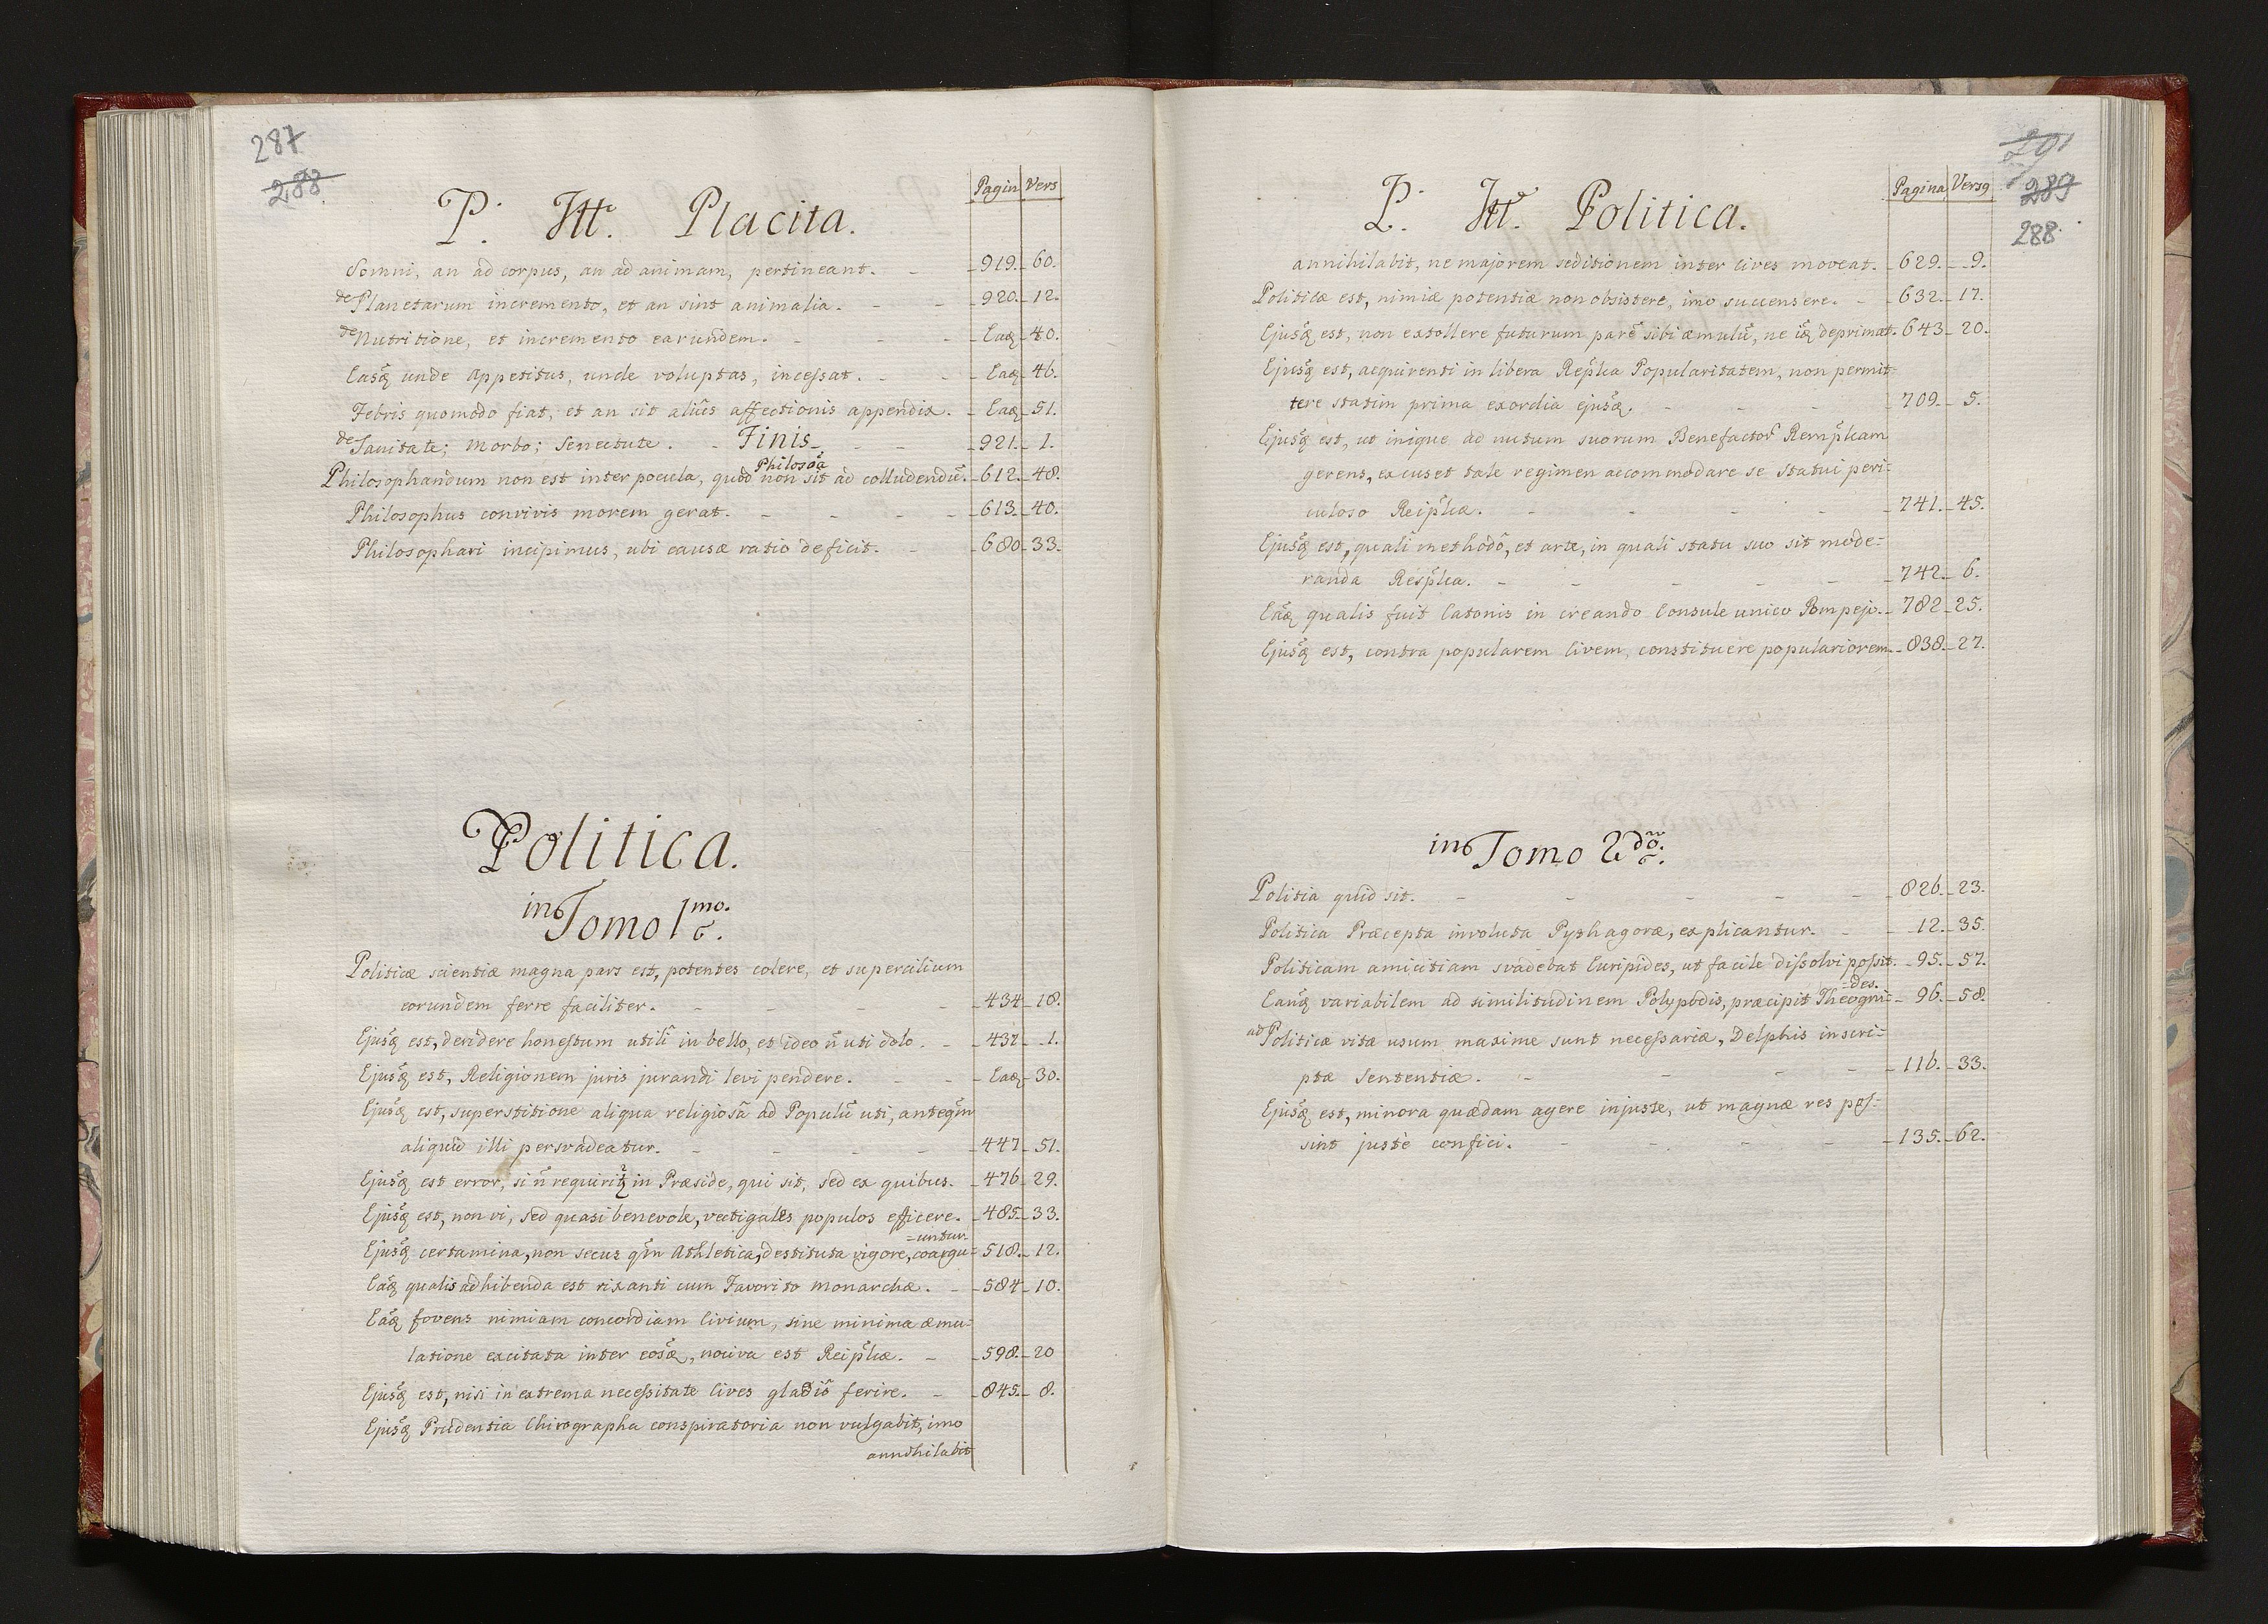 287
288
Pagin Vers
P. Itt. Placita.
Somni, an ad corpus, an ad animam, pertineant. - 919. 60.
de Planetarum incremento, et an sint animalia. - - 920. 12.
de Nutritione, et incremento earundem. - - - Eaq 40.
Easq́ unde appetitus, unde voluptas, incessat. - - Eaq 46.
Febris quomodo fiat, et an sit aliûs affectionis appendix. - Eaq 51.
de Sanitate; Morbo; Senectute. - Finis - - 921. 1.
Philosoâ
Philosophandum non est inter pocula, quod non sit ad colludendū. 612. 48.
Philosophus convivis morem gerat. - - - 613. 40.
Philosophari incipimus, ubi causæ ratio deficit. - 680 33.
Politica.
in Tomo 1mo.
Politicæ scientiæ magna pars est, potentes colere, et supercilium
eorundem ferre faciliter. - - - - 434 18.
Ejusq́ est, deridere honestum utili in bello, et ideo ñ uti dolo. - 437 1.
Ejusq́ est, Religionem juris jurandi levi pendere. - - Eaq 30.
Ejusq́ est, superstitione aliqua religiosâ ad Populū uti, anteq̃m
aliquid illi persvadeatur. - - - - 447 51.
Ejusq́ est error, si ñ requiritʒ in Præside, qui sit, sed ex quibus. - 476 29.
Ejusq́ est, non vi, sed quasi benevole, vectigales populos efficere. - 485. 33.
=untur
Ejusq́ certamina, non secus q̃m Athletica, destituta vigore, coargu= 518. 12.
Eaq́ qualis adhibenda est rixanti cum Favorito Monarchæ. - 584 10.
Eaq́ fovens nimiam concordiam Civium, sine minima æmu=
latione excitata inter eosq́, nociva est Reip̃licæ. - 598. 20
Ejusq́ est, nisi in extrema necessitate Cives gladiô ferire. - 845. 8.
Ejusq́ Prudentia Chirographa conspiratoria non vulgabit, imo
annihilabit
291
289
288
Pagina Versq
P. Itt. Politica.
annihilabit, ne majorem seditionem inter Cives moveat. 629. 9.
Politicæ est, nimiæ potentiæ non obsistere, imo succensere. - 632. 17.
Ejusq́ est, non extollere futurum parē sibi æmulū, ne iq́ deprimat. 643 20.
Ejusq́ est, acquirenti in libera Rep̃lica Popularitatem, non permit=
tere statim prima exordia ejusq́. - - - 709. 5.
Ejusq́ est, ut inique ad nutum suorum Benefactor̃ Remp̃licam
gerens, excuset tale regimen accommodare se statui peri=
culoso Reip̃licæ. - - - - 741. 45.
Ejusq́ est, quali methodô, et arte, in quali statu suo sit mode=
randa Resp̃lica. - - - - - 742 6.
Eaq́ qualis fuit Catonis in creando Consule unico Pompejo. 782 25.
Ejusq́ est, contra popularem Civem, constituere populariorem. 838. 27.
in Tomo 2do.
Politia quid sit. - - - - - 826. 23.
Politica Præcepta involuta Pythagoræ, explicantur. - 12. 35.
Politicam amicitiam svadebat Euripides, ut facile dissolvi possit. 95. 57.
=des.
Eanq́ variabilem ad similitudinem Polypodis, præcipit Theogni= 96. 58.
ad Politicæ vitæ usum maxime sunt necessariæ, Delphis inscri=
ptæ Sententiæ. - - - - 116. 33.
Ejusq́ est, minora quædam agere injuste, ut magnæ res pos=
sint justè confici. - - - - 135. 62.